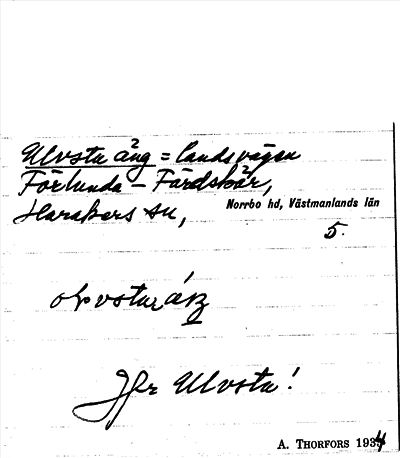 Ulvsta äng = landsvägen
Förlunda – Färdskär,
Harakers sn,
Norrbo hd, Västmanlands län
5.
Jfr Ulvsta!
A. THORFORS 1934